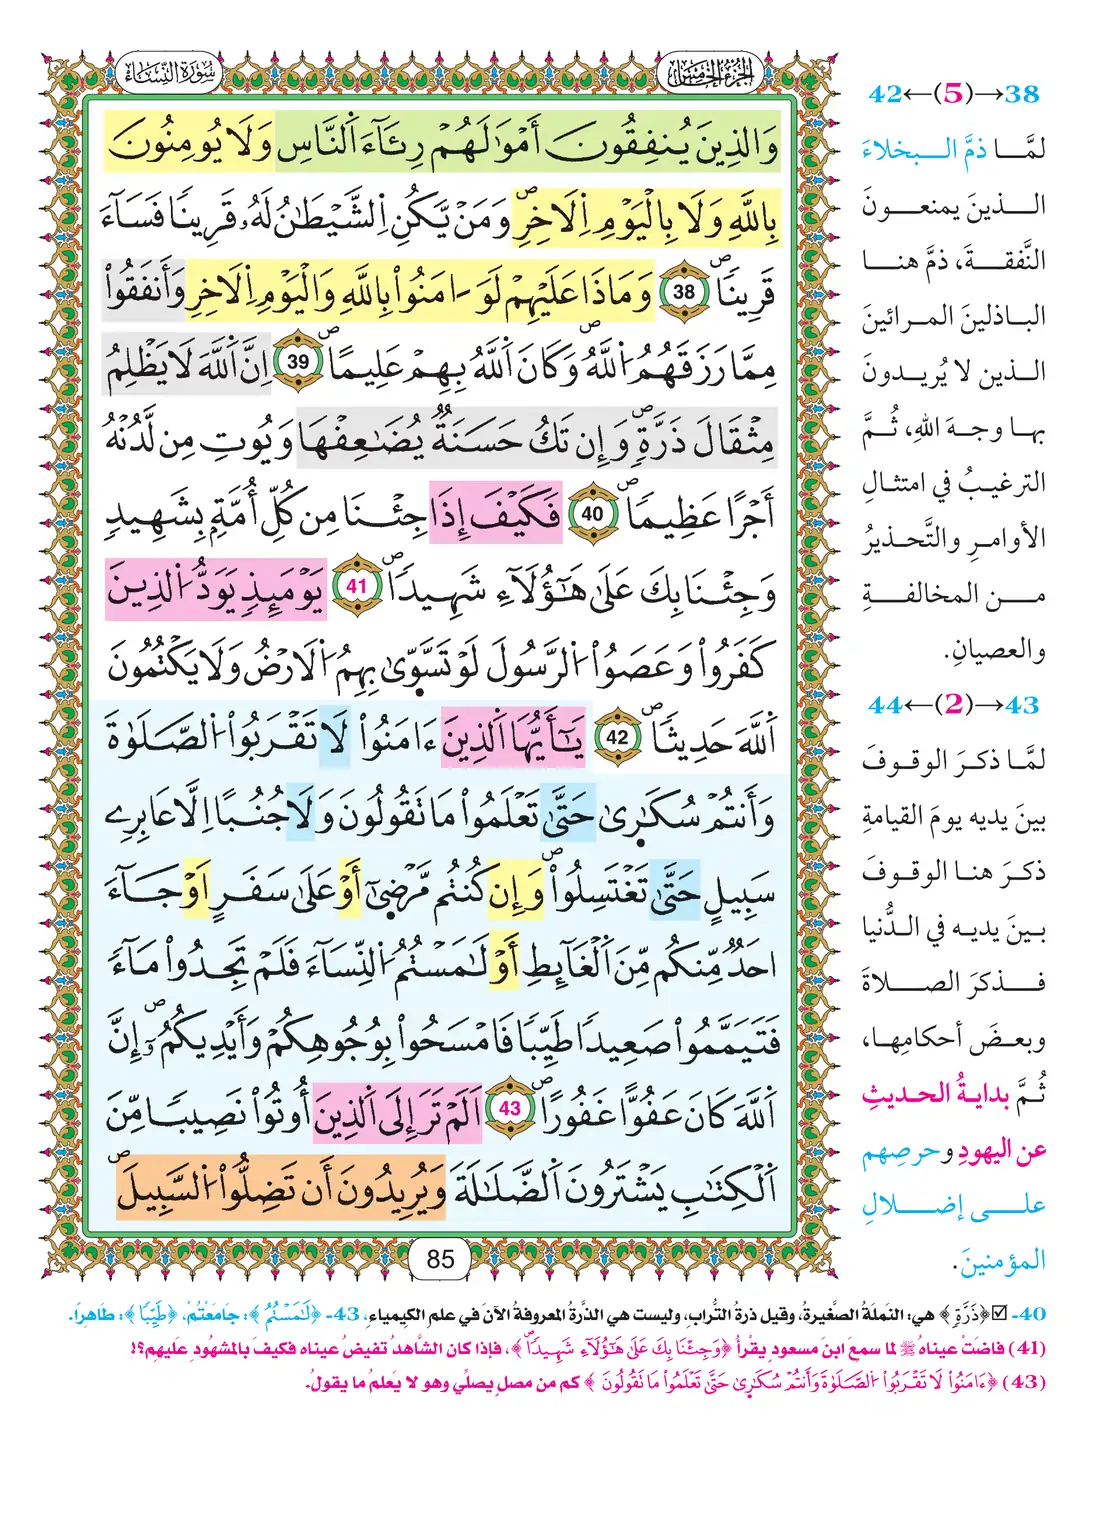 سُورَةُ النِّسَاءِ
الجُزْءُ الخَامِسُ
وَالذِينَ يُنفِقُونَ أَمْوَٰلَهُمْ رِئَآءَ اَ۬لنَّاسِ وَلَا يُومِنُونَ
بِاللَّهِ وَلَا بِالْيَوْمِ اِ۬لَاخِرِۖ وَمَنْ يَّكُنِ اِ۬لشَّيْطَٰنُ لَهُۥ قَرِيناٗ فَسَآءَ
قَرِيناٗۖ 38 وَمَاذَا عَلَيْهِمْ لَوَ اٰمَنُواْ بِاللَّهِ وَالْيَوْمِ اِ۬لَاخِرِ وَأَنفَقُواْ
مِمَّا رَزَقَهُمُ اُ۬للَّهُۖ وَكَانَ اَ۬للَّهُ بِهِمْ عَلِيماًۖ 39 اِنَّ اَ۬للَّهَ لَا يَظْلِمُ
مِثْقَالَ ذَرَّةٖۖ وَإِن تَكُ حَسَنَةٞ يُضَٰعِفْهَا وَيُوتِ مِن لَّدُنْهُ
أَجْراً عَظِيماٗۖ 40 فَكَيْفَ إِذَا جِئْنَا مِن كُلِّ أُمَّةِۢ بِشَهِيدٖ
وَجِئْنَا بِكَ عَلَىٰ هَٰٓؤُلَآءِ شَهِيداٗۖ 41 يَوْمَئِذٖ يَوَدُّ اُ۬لذِينَ
كَفَرُواْ وَعَصَوُاْ اُ۬لرَّسُولَ لَوْ تَسَّوّ۪ىٰ بِهِمُ اُ۬لَارْضُ وَلَا يَكْتُمُونَ
اَ۬للَّهَ حَدِيثاٗۖ 42 يَٰٓأَيُّهَا اَ۬لذِينَ ءَامَنُواْ لَا تَقْرَبُواْ اُ۬لصَّلَوٰةَ
وَأَنتُمْ سُكَٰر۪ىٰ حَتَّىٰ تَعْلَمُواْ مَا تَقُولُونَ وَلَا جُنُباً اِلَّا عَابِرِے
سَبِيلٍ حَتَّىٰ تَغْتَسِلُواْۖ وَإِن كُنتُم مَّرْض۪ىٰٓ أَوْ عَلَىٰ سَفَرٍ اَوْ جَآءَ
احَدٞ مِّنكُم مِّنَ اَ۬لْغَآئِطِ أَوْ لَٰمَسْتُمُ اُ۬لنِّسَآءَ فَلَمْ تَجِدُواْ مَآءٗ
فَتَيَمَّمُواْ صَعِيداٗ طَيِّباٗ فَامْسَحُواْ بِوُجُوهِكُمْ وَأَيْدِيكُمُۥٓۖ إِنَّ
اَ۬للَّهَ كَانَ عَفُوّاً غَفُوراًۖ 43 اَلَمْ تَرَ إِلَى اَ۬لذِينَ أُوتُواْ نَصِيباٗ مِّنَ
اَ۬لْكِتَٰبِ يَشْتَرُونَ اَ۬لضَّلَٰلَةَ وَيُرِيدُونَ أَن تَضِلُّواْ اُ۬لسَّبِيلَۖ
85
38→(5)←42
لمَّا ذمَّ البخلاءَ
الذينَ يمنعونَ
النَّفقةَ، ذمَّ هنا
الباذلينَ المرائينَ
الذين لا يُريدونَ
بها وجهَ اللهِ، ثُمَّ
الترغيبُ في امتثالِ
الأوامرِ والتَّحذيرُ
من المخالفةِ
والعصيانِ.
43→(2)←44
لمَّا ذكرَ الوقوفَ
بينَ يديه يومَ القيامةِ
ذكرَ هنا الوقوفَ
بينَ يديه في الدُّنيا
فذكرَ الصلاةَ
وبعضَ أحكامِها،
ثُمَّ بدايةُ الحديثِ
عن اليهودِ وحرصِهم
على إضلالِ
المؤمنينَ.
40- ☑ ﴿ذَرَّةٖ﴾ هي: النملةُ الصَّغيرةُ، وقيل ذرةُ التُّرابِ، وليست هي الذَّرةُ المعروفةُ الآنَ في علمِ الكيمياءِ، 43- ﴿لَٰمَسْتُمُ﴾: جامَعْتُمْ، ﴿طَيِّباٗ﴾: طاهراً.
(41) فاضَتْ عيناهُ ﷺ لما سمعَ ابنَ مسعودٍ يقرأُ ﴿وَجِئْنَا بِكَ عَلَىٰ هَٰٓؤُلَآءِ شَهِيداٗۖ﴾، فإذا كان الشَّاهدُ تفيضُ عيناه فكيفَ بالمشهُودِ عليهِم؟!
(43) ﴿ءَامَنُواْ لَا تَقْرَبُواْ اُ۬لصَّلَوٰةَ وَأَنتُمْ سُكَٰر۪ىٰ حَتَّىٰ تَعْلَمُواْ مَا تَقُولُونَ﴾ كم من مصلٍ يصلِّي وهو لا يَعلمُ ما يقولُ.